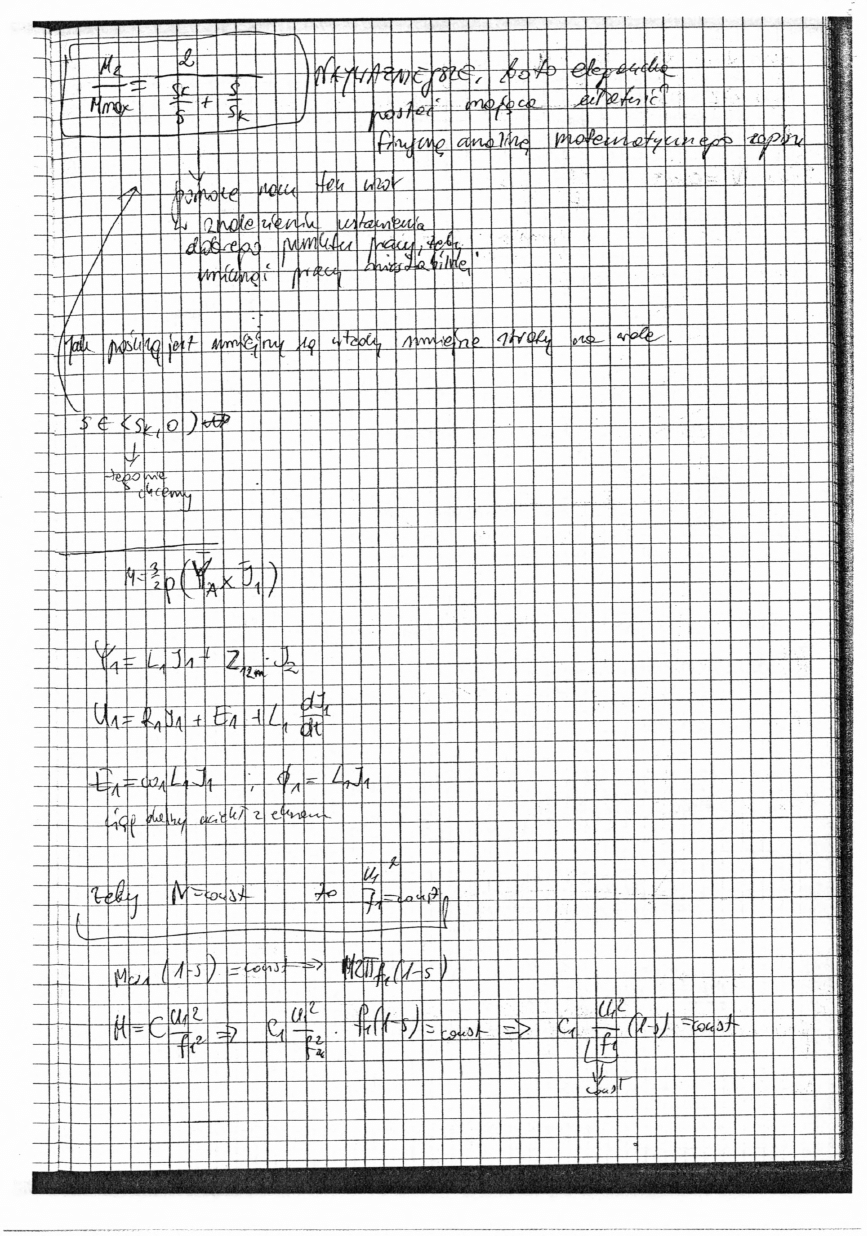 M₂/Mmax = 2/(sₖ/s + s/sₖ)
NAJWAŻNIEJSZE, bo to elegancka
postać mogąca ułatwić
fizyczną analizę matematycznego zapisu
pomoże nam ten wzór
w znalezieniu ustawienia
dobrego punktu pracy, żeby
uniknąć pracy niestabilnej
Jak poślizg jest mniejszy są wtedy mniejsze straty na
s ∈ <sₖ, 0)
tego nie
chcemy
M = 3/2 p (Ψ_A × J₁)
Ψ₁ = L₁J₁ + Z₁₂ₘ · J₂
U₁ = R₁J₁ + E₁ + L₁ dJ₁/dt
E₁ = ω₁L₁J₁ ; ϕ₁ = L₁J₁
ciąg dalszy uciekł z ekranu
żeby N = const to U₁²/f₁ = const
Mω₁(1-s) = const ⇒ M2πf₁(1-s)
M = C U₁²/f₁² ⇒ C₁ U₁²/f₁² · f₁(1-s) = const ⇒ C₁ U₁²/f₁ (1-s) = const
const